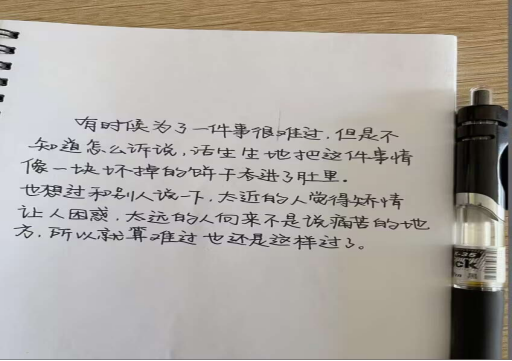 有时候为了一件事很难过,但是不
知道怎么诉说,活生生地把这件事情
像一块坏掉的饼子吞进了肚里.
也想过和别人说一下,太近的人觉得矫情
让人困惑,太远的人向来不是说痛苦的地
方,所以就算难过也还是这样过了。